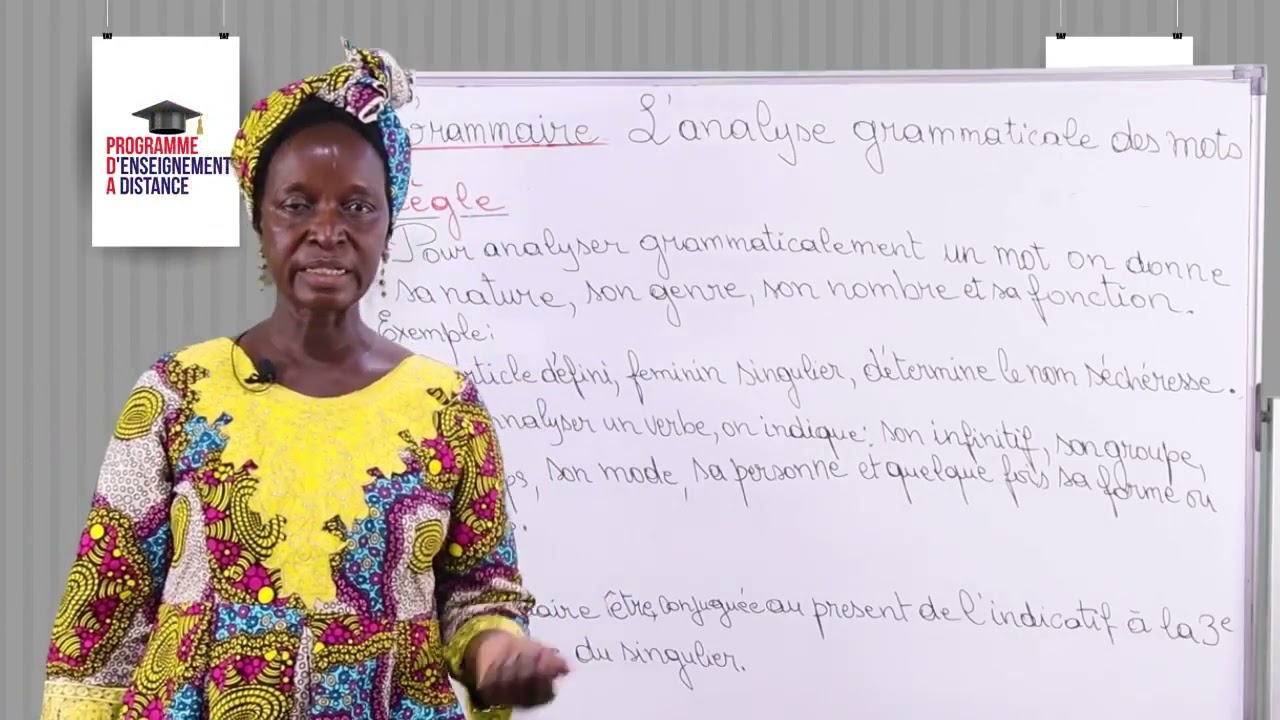 PROGRAMME
D'ENSEIGNEMENT
A DISTANCE
Grammaire L'analyse grammaticale des mots
Règle
Pour analyser grammaticalement un mot on donne
sa nature, son genre, son nombre et sa fonction.
Exemple:
article défini, feminin singulier, détermine le nom séchéresse.
analyser un verbe, on indique: son infinitif, son groupe,
son mode, sa personne et quelque fois sa forme ou
être, conjuguée au present de l'indicatif à la 3e
du singulier.